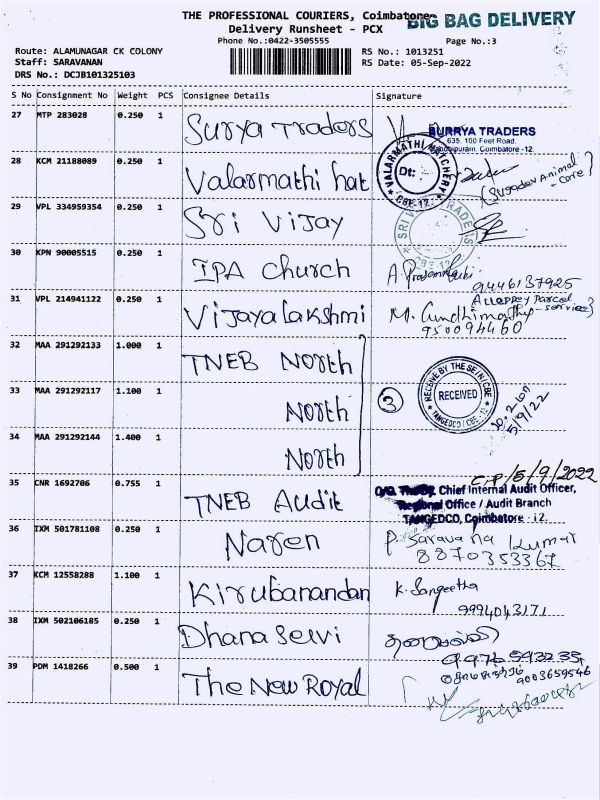 THE PROFESSIONAL COURIERS, Coimbatore
BIG BAG DELIVERY
Delivery Runsheet - PCX
Phone No.:0422-3505555
Page No.:3
Route: ALAMUNAGAR CK COLONY
RS No.: 1013251
Staff: SARAVANAN
RS Date: 05-Sep-2022
DRS No.: DCJB101325103
S No Consignment No Weight PCS Consignee Details Signature
27 MTP 283028 0.250 1 Surya Traders
SURRYA TRADERS
635, 100 Feet Road,
Coimbatore -12.
28 KCM 21188089 0.250 1 Valarmathi hat
VALARMATHI HATCHERY
Dt:
CBE-12
29 VPL 334959354 0.250 1 Sri Vijay
SRI TRADERS
CBE-12
30 KPN 90005515 0.250 1 IPA Church
9446137925
31 VPL 214941122 0.250 1 Vijayalakshmi
M. Gundhimathy
950094460
32 MAA 291292133 1.000 1 TNEB North
33 MAA 291292117 1.100 1 North
3
RECEIVE BY THE SE/N/CBE
RECEIVED
TANGEDCO / CBE - 12
5/9/22
34 MAA 291292144 1.400 1 North
35 CNR 1692706 0.755 1 TNEB Audit
5/9/2022
Chief Internal Audit Officer,
Regional Office / Audit Branch
TANGEDCO, Coimbatore - 12.
36 IXM 501781108 0.250 1 Naren
P. Saravana Kumar
8870353367
37 KCM 12558288 1.100 1 Kirubanandan
K. Sangeetha
9994043171
38 IXM 502106185 0.250 1 Dhana Selvi
39 PDM 1418266 0.500 1 The New Royal
9003659546